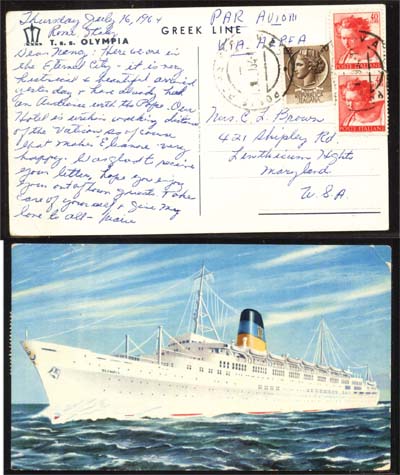 Thursday July 16, 1964
Rome, Italy
T.S.S. OLYMPIA
GREEK LINE
Dear Nancy: Here we are in
the Eternal City - it is very
historical & beautiful arrived
yesterday & have already had
an Audience with the Pope. Our
Hotel is within walking distance
of the Vatican so of course
that makes Eleanore very
happy. So glad to receive
your letter, hope you enjoy
your out of town guests. Take
care of yourself & give my
love to all - Marie
PAR AVION
VIA AEREA
POSTE ITALIANE
40
POSTE ITALIANE
POSTE ITALIANE
Mrs. C. L. Brown
421 Shipley Rd.
Linthicum Hghts
Maryland
U.S.A
OLYMPIA